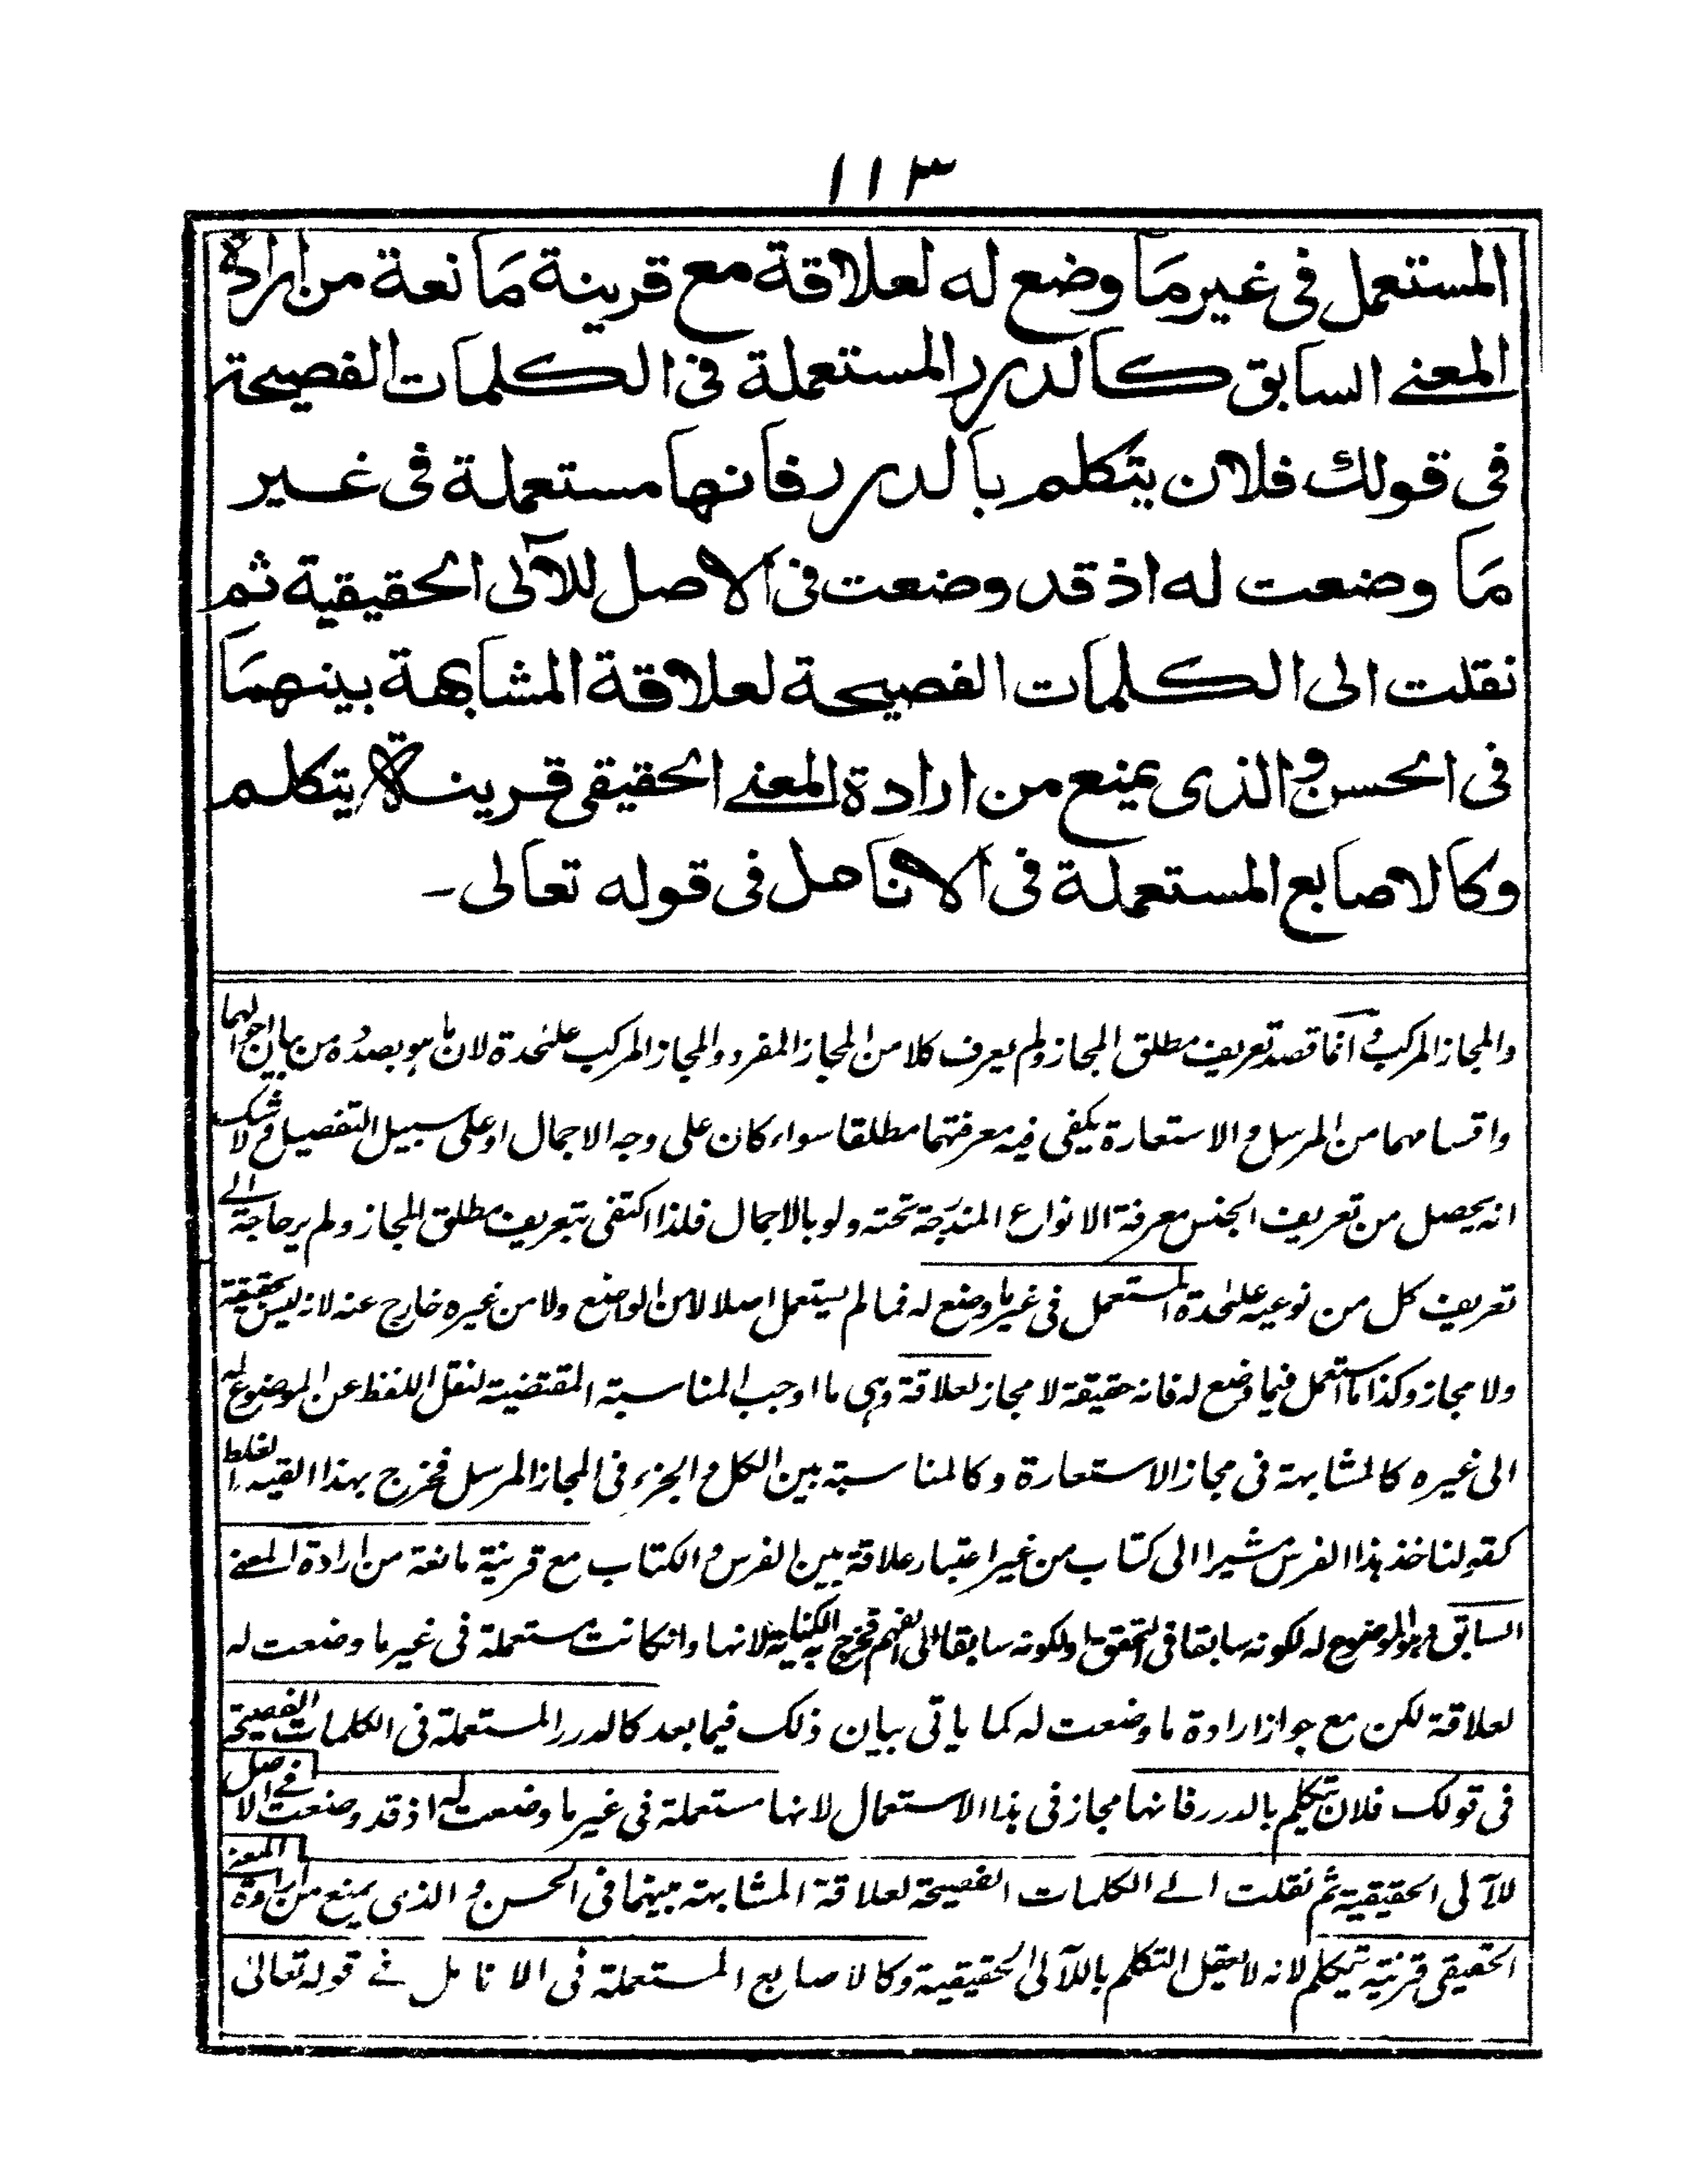 ١١٣
المستعمل فى غير ما وضع له لعلاقة مع قرينة مانعة من ارادة
المعنى السابق كالدرر المستعملة فى الكلمات الفصيحة
فى قولك فلان يتكلم بالدرر فانها مستعملة فى غير
ما وضعت له اذ قد وضعت فى الاصل للآلى الحقيقية ثم
نقلت الى الكلمات الفصيحة لعلاقة المشابهة بينهما
فى الحسن والذى يمنع من ارادة المعنى الحقيقى قرينة يتكلم
وكالاصابع المستعملة فى الانامل فى قوله تعالى -
والمجاز المركب وانما قصد تعريف مطلق المجاز ولم يعرف كلا من المجاز المفرد والمجاز المركب علىحدة لان ما هو بصدده من بيان احوالهما
واقسامهما من المرسل والاستعارة يكفى فيه معرفتهما مطلقا سواء كان على وجه الاجمال او على سبيل التفصيل ولا شك
انه يحصل من تعريف الجنس معرفة الانواع المندرجة تحته ولو بالاجمال فلذا اكتفى بتعريف مطلق المجاز ولم ير حاجة الى
تعريف كل من نوعيه علىحدة المستعمل فى غير ما وضع له فما لم يستعمل اصلا لا من الواضع ولا من غيره خارج عنه لانه ليس بحقيقة
ولا مجاز وكذا ما استعمل فيما وضع له فانه حقيقة لا مجاز لعلاقة وهى ما اوجب المناسبة المقتضية لنقل اللفظ عن الموضوع له
الى غيره كالمشابهة فى مجاز الاستعارة وكالمناسبة بين الكل والجزء فى المجاز المرسل فخرج بهذا القيد الغلط
كقولنا خذ هذا الفرس مشيرا الى كتاب من غير اعتبار علاقة بين الفرس والكتاب مع قرينة مانعة من ارادة المعنى
السابق وهو الموضوع له لكونه سابقا فى التحقق او لكونه سابقا الى الفهم فخرج به الكناية لانها وان كانت مستعملة فى غير ما وضعت له
لعلاقة لكن مع جواز ارادة ما وضعت له كما ياتى بيان ذلك فيما بعد كالدرر المستعملة فى الكلمات الفصيحة
فى قولك فلان يتكلم بالدرر فانها مجاز فى هذا الاستعمال لانها مستعملة فى غير ما وضعت له اذ قد وضعت فى الاصل
للآلى الحقيقية ثم نقلت الى الكلمات الفصيحة لعلاقة المشابهة بينهما فى الحسن والذى يمنع من ارادة المعنى
الحقيقى قرينة يتكلم لانه لا يعقل التكلم باللآلى الحقيقية وكالاصابع المستعملة فى الانامل فى قوله تعالى